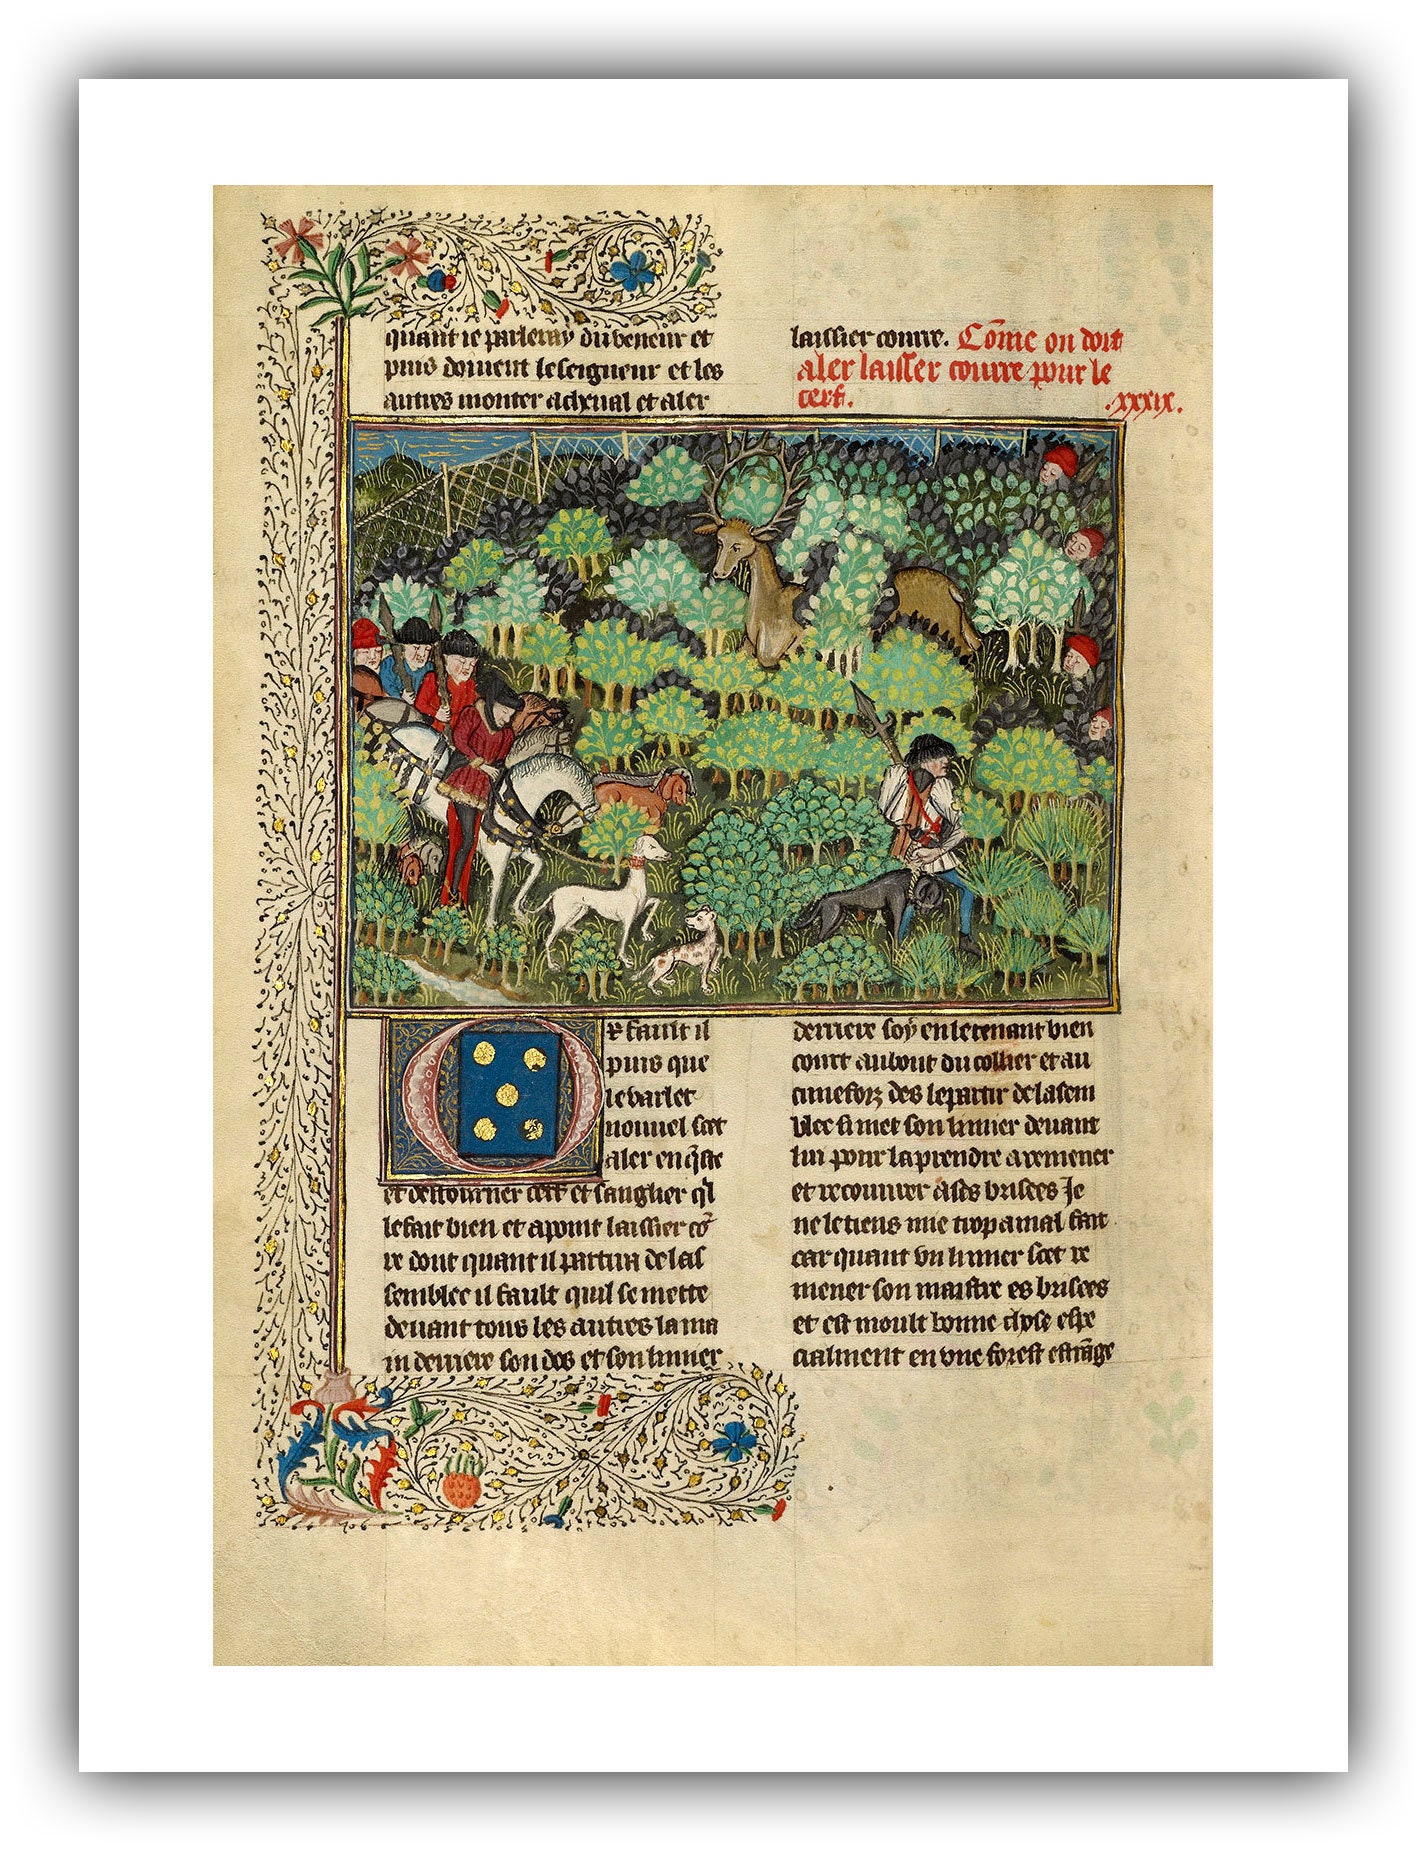 quant ie parleray du veneur et
puis doiuent le seigneur et les
autres monter a cheual et aler
laissier courre. Cõme on doit
aler laisser courre pour le
cerf. .xxxix.
Or fault il
puis que
le varlet
nouuel scet
aler en q̃ste
et destourner cerf et sanglier q̃l
le fait bien et a point laissier co᷑
re dont quant il partira de las
semblee il fault quil se mette
deuant tous les autres la ma
in derriere son dos et son limier
derriere soy en le tenant bien
court au bout du collier et au
des le partir de lasem
blee si met son limier deuant
lui pour laprendre a remener
et recouurer a ses brisees Je
ne le tiens mie trop a mal fait
car quant vn limier scet re
mener son maistre es brisees
et est moult bonne chose espe
cialment en vne forest estrãge